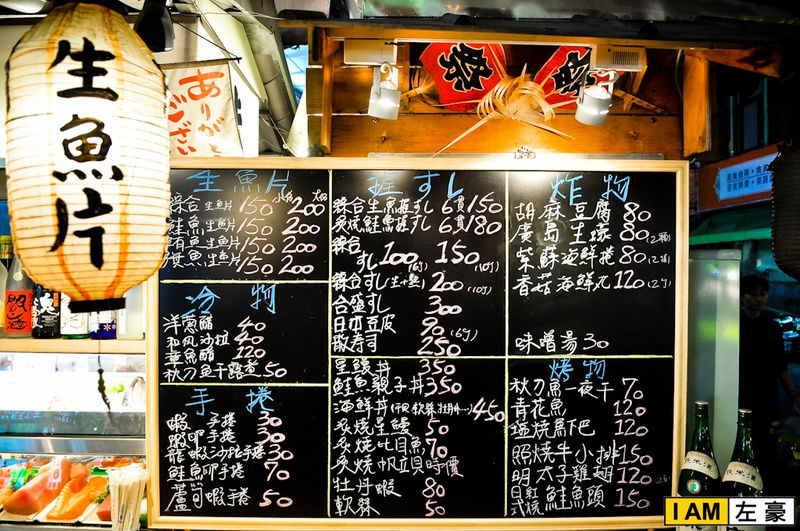 生魚片
ありがとう
ござい
祭
生魚片
小 大
綜合生魚片 150 200
鮭魚生魚片 150 200
鮪魚生魚片 150 200
旗魚生魚片 150 200
冷物
洋蔥醋 40
和風沙拉 40
章魚醋 120
秋刀魚干露煮 50
手捲
蝦手捲 30
蝦卵手捲 30
龍蝦沙拉手捲 30
鮭魚卵手捲 70
蘆筍蝦手捲 50
握すし
綜合生魚握すし 6貫 150
炙燒鮭魚握すし 6貫 180
綜合すし 100 (6個) 150 (10個)
綜合すし(生+熟) 200 (10個)
合盛すし 300
日本豆皮 90 (6個)
散寿司 250
星鰻丼 350
鮭魚親子丼 350
海鮮丼 450
炙燒星鰻 50
炙燒比目魚 70
炙燒帆立貝 時價
牡丹蝦 80
軟絲 50
炸物
胡麻豆腐 80
廣島生蠔 80
紫蘇海鮮捲 80
香菇海鮮丸 120
味噌湯 30
烤物
秋刀魚一夜干 70
青花魚 120
塩燒魚下巴 120
照燒牛小排 150
明太子雞翅 120
日式紅燒鮭魚頭 150
純米酒
純米酒
I AM 左豪